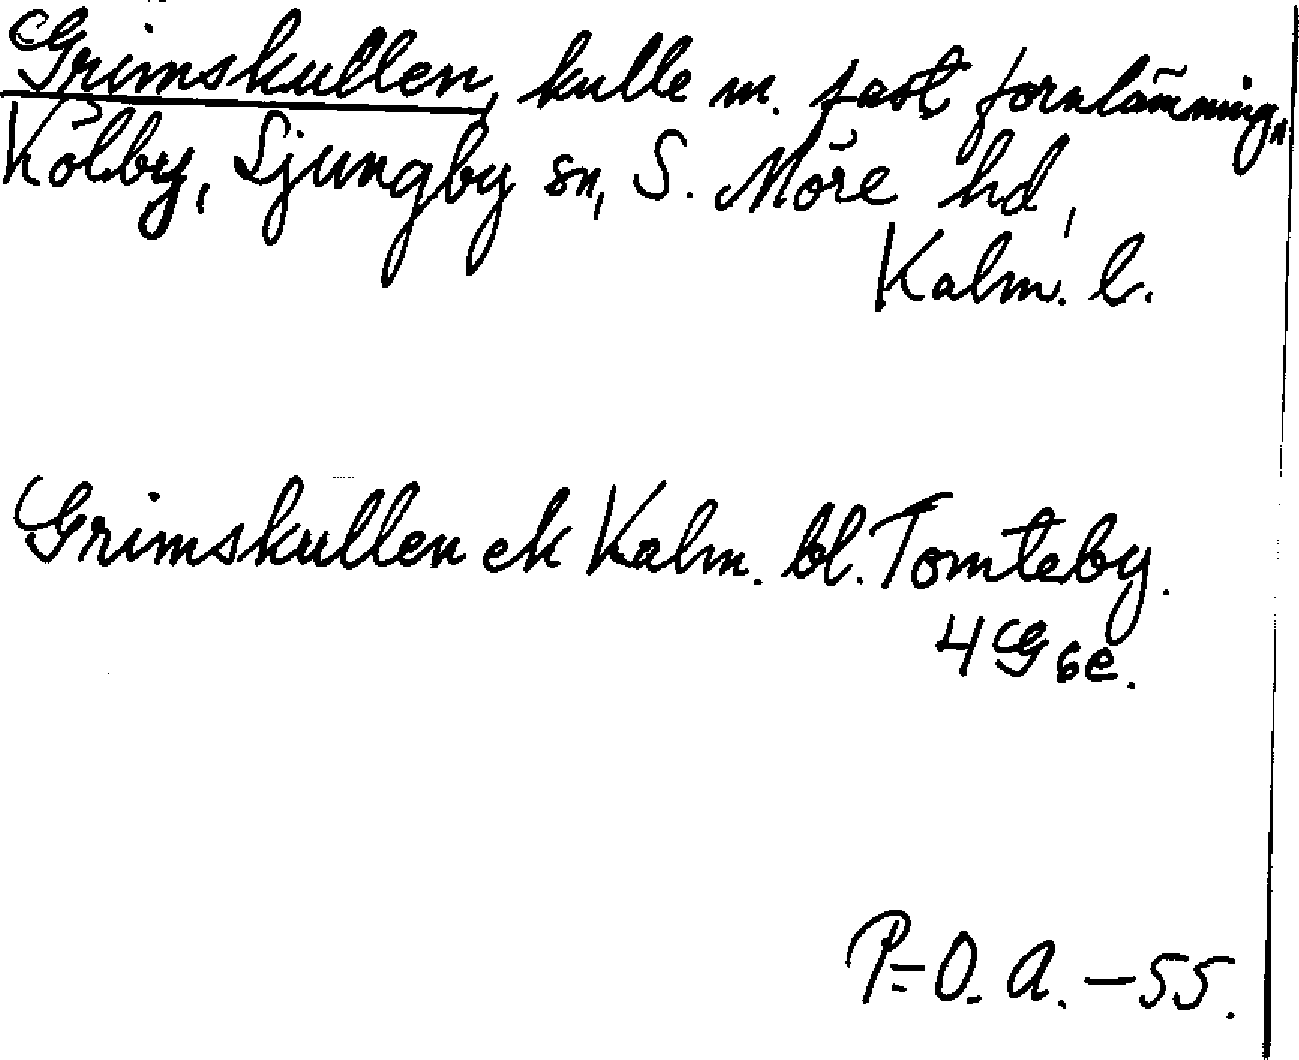 Grimskullen, kulle m. fast fornlämning,
Kölby, Ljungby sn, S. Möre hd,
Kalm. l.
Grimskullen ek Kalm. bl. Tomteby.
4G6e.
P-O. A. - 55.